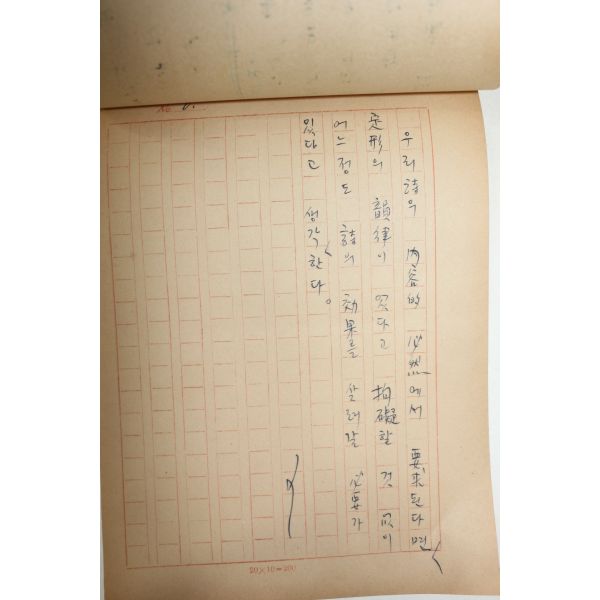 No
우리 詩의 內容的 必然에서 要求된다면
定形의 韻律이 있다고 拘礙할 것 없이
어느정도 詩의 効果를 살려갈 必要가
있다고 생각한다。
20×10=200